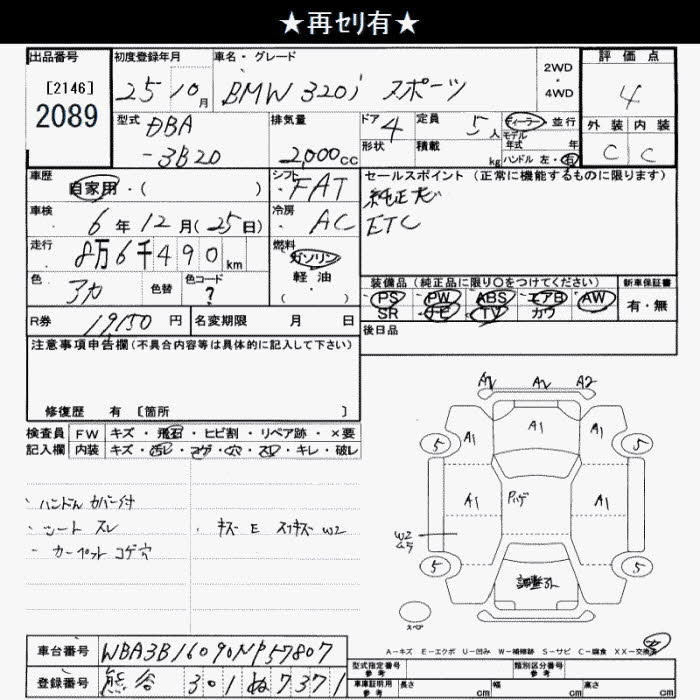 ★再ｾﾘ有★
出品番号 初度登録年月 車名・グレード 2WD・4WD 評価点
[2146] 25 10月 BMW 320i スポーツ 4
2089
型式 DBA 排気量 ドア 4 定員 5人 ディーラー・並行 外装 内装
-3B20 2,000cc 形状 積載 kg モデル年式 年 C C
ハンドル 左・右
車歴 自家用・( ) シフト FAT セールスポイント(正常に機能するものに限ります)
車検 6年12月(25日) 冷房 AC ETC
走行 8万6千490km 燃料 ガソリン
軽油
・( )
色 アカ 色替 色コード ? 装備品(純正品に限り○をつけてください) 新車保証書
PS PW ABS エアB AW 有・無
SR ナビ TV カワ
R券 19150円 名変期限 月 日 後日品
注意事項申告欄(不具合内容等は具体的に記入して下さい)
修復歴 有 [箇所 ]
検査員 FW キズ・飛石・ヒビ割・リペア跡・×要
記入欄 内装 キズ・汚レ・コゲ・穴・スレ・キレ・破レ
・ハンドル カバー付
・シート スレ ・キズ E スリキズ W2
・カーペット コゲ穴
A2 A2 A2
A1 A1 A1
5 5
A1 A1
W2
5 5
A-キズ E-エクボ U-凹み W-補修跡 S-サビ C-腐食 XX-交換済
車台番号 WBA3B16090NP57807
登録番号 熊谷 301 ぬ 7371
型式指定番号 参考 類別区分番号 参考
車庫証明用 参考 長さ cm 幅 cm 高さ cm